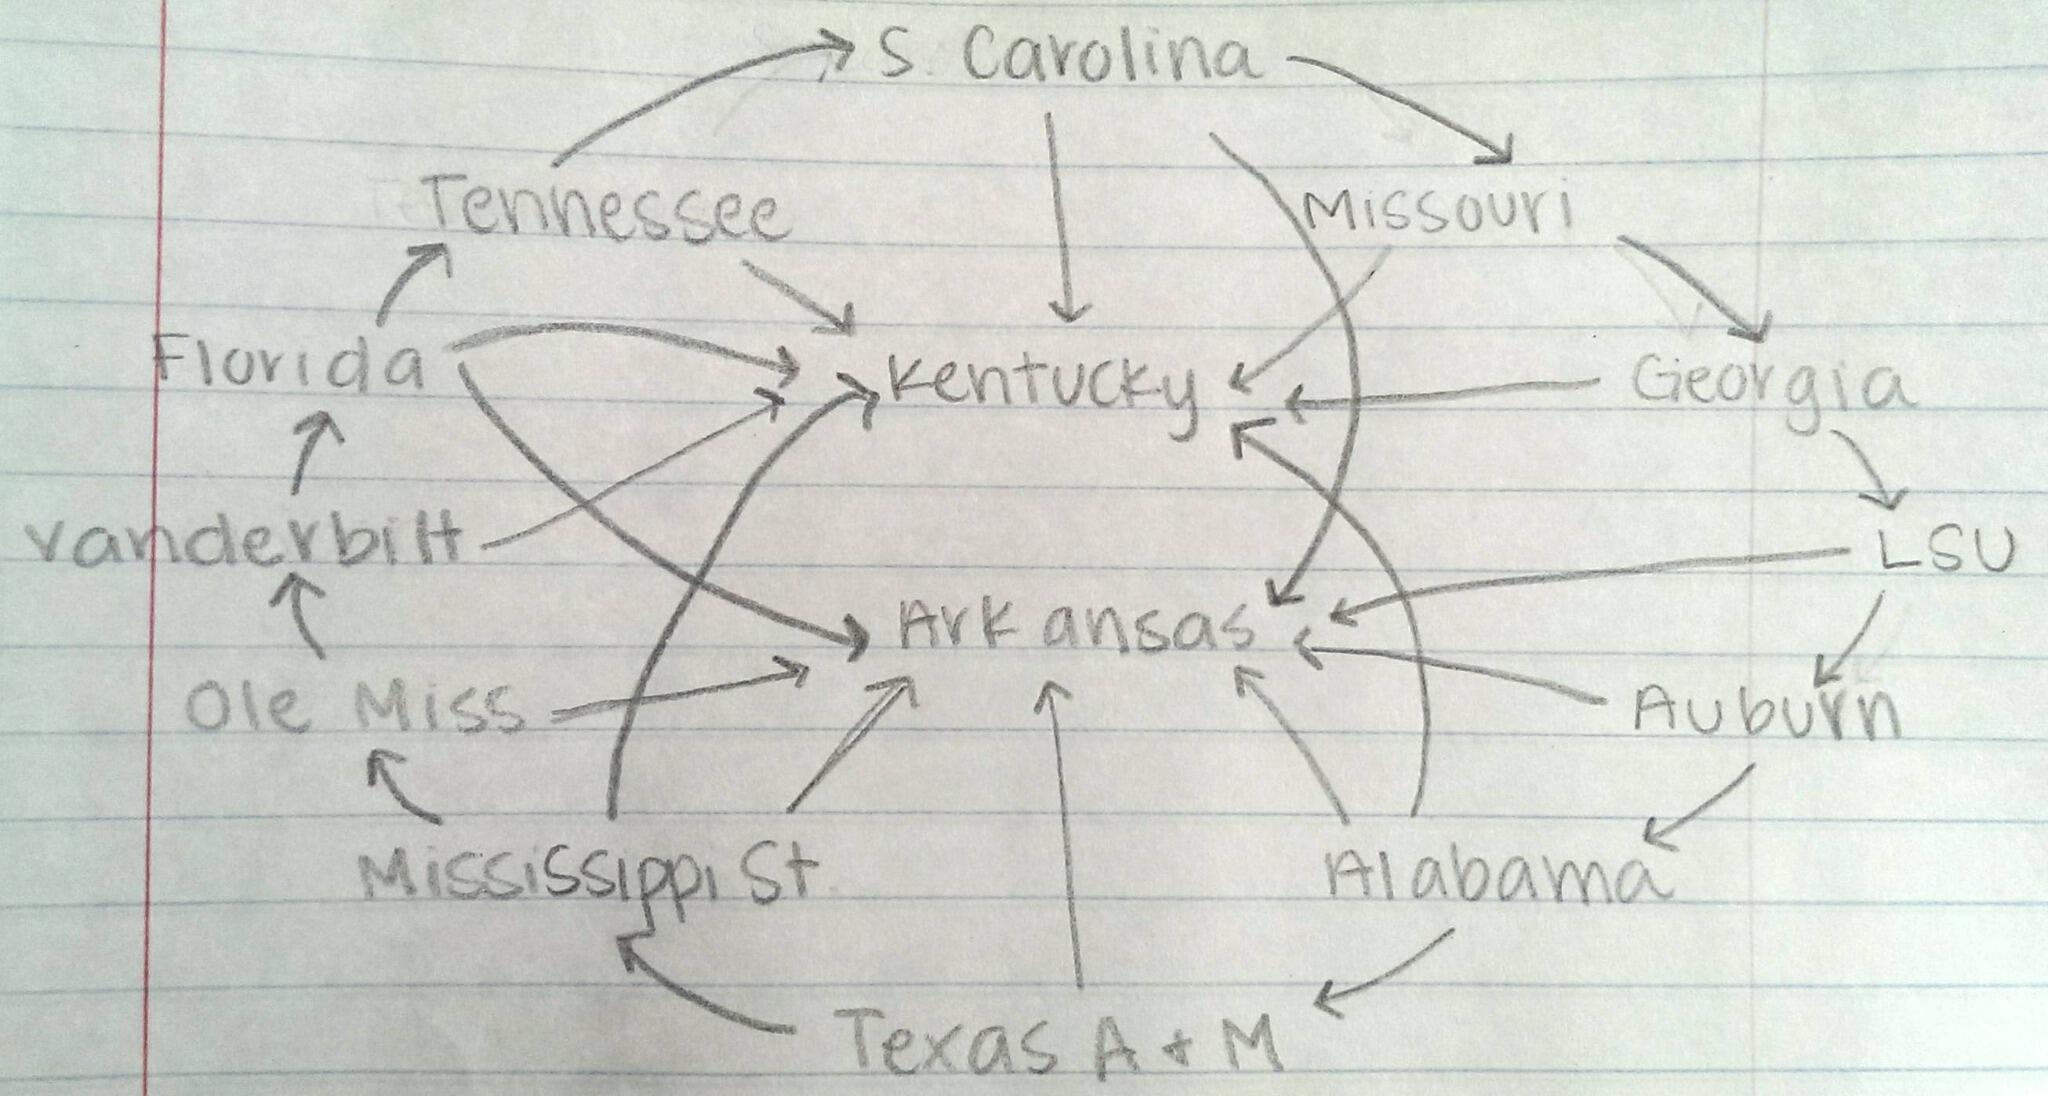 S. Carolina
Tennessee
Missouri
Florida
Kentucky
Georgia
Vanderbilt
LSU
Arkansas
Ole Miss
Auburn
Mississippi St.
Alabama
Texas A + M